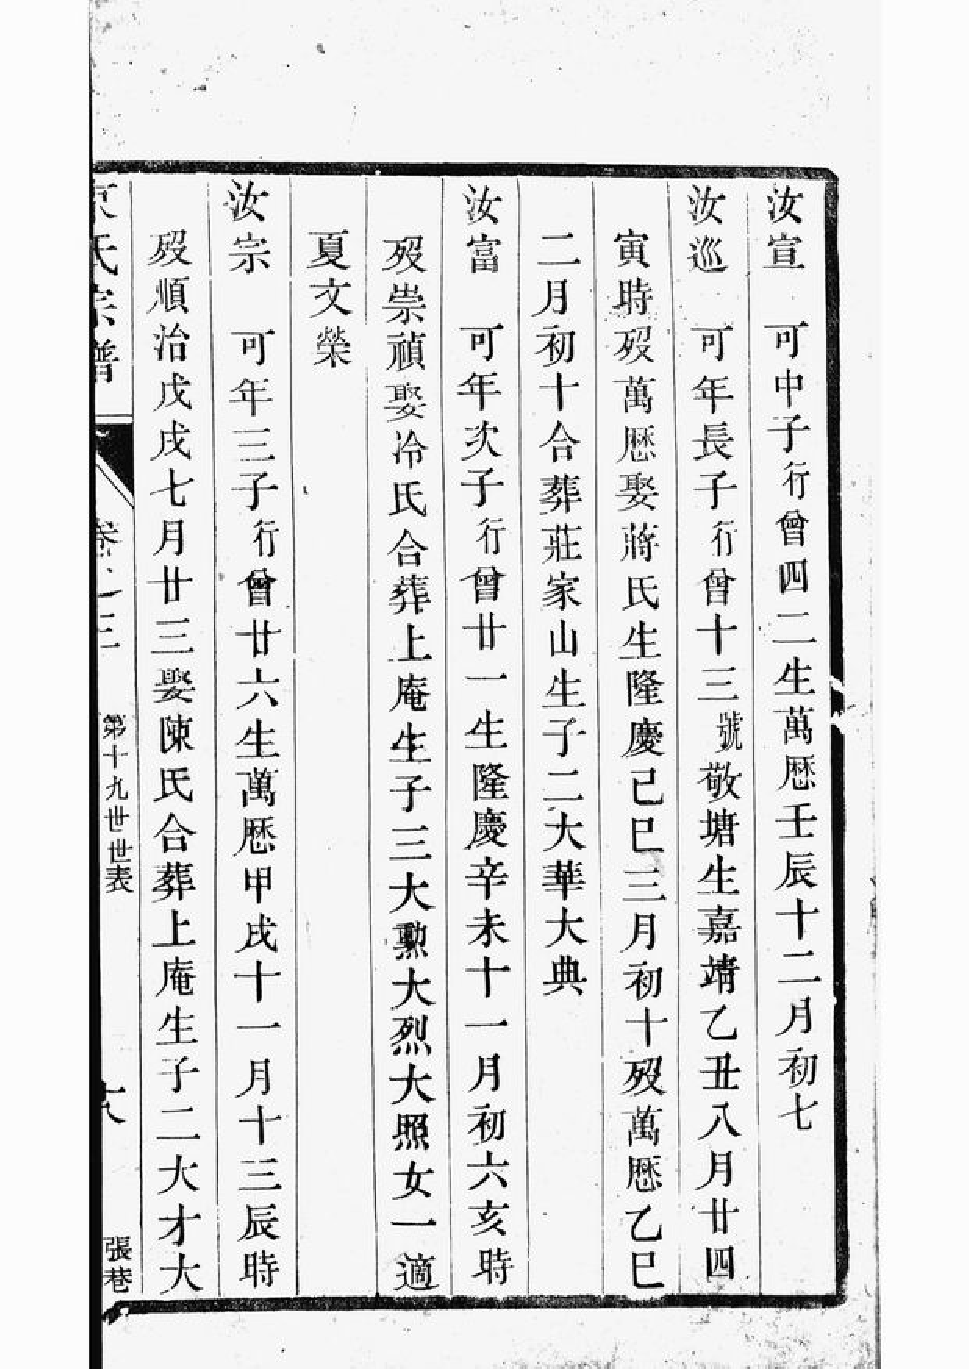 汝宣 可中子行曾四二生萬歴壬辰十二月初七
汝巡 可年長子行曾十三號敬塘生嘉靖乙丑八月廿四
寅時歿萬歴娶蔣氏生隆慶己巳三月初十歿萬歴乙巳
二月初十合葬莊家山生子二大華大典
汝富 可年次子行曾廿一生隆慶辛未十一月初六亥時
歿崇禎娶冷氏合葬上庵生子三大勲大烈大照女一適
夏文榮
汝宗 可年三子行曾廿六生萬歴甲戌十一月十三辰時
歿順治戊戌七月廿三娶陳氏合葬上庵生子二大才大
氏宗譜 卷之三 第十九世世表 張巷